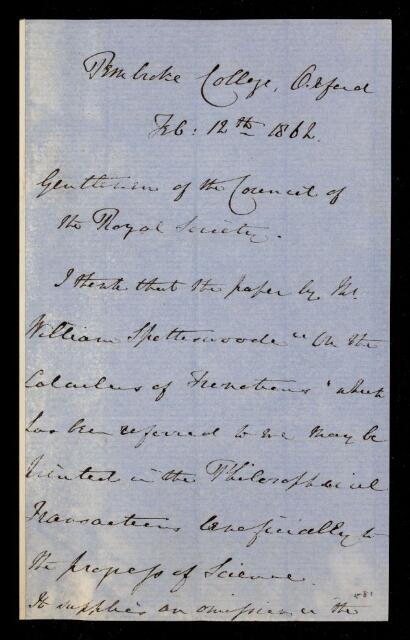 Pembroke College, Oxford
Feb: 12th 1862.
Gentlemen of the Council of
the Royal Society.
I think that the paper by Mr.
William Spottiswoode "On the
Calculus of Functions" which
has been referred to me may be
printed in the Philosophical
Transactions beneficially to
the progress of Science.
It supplies an omission in the